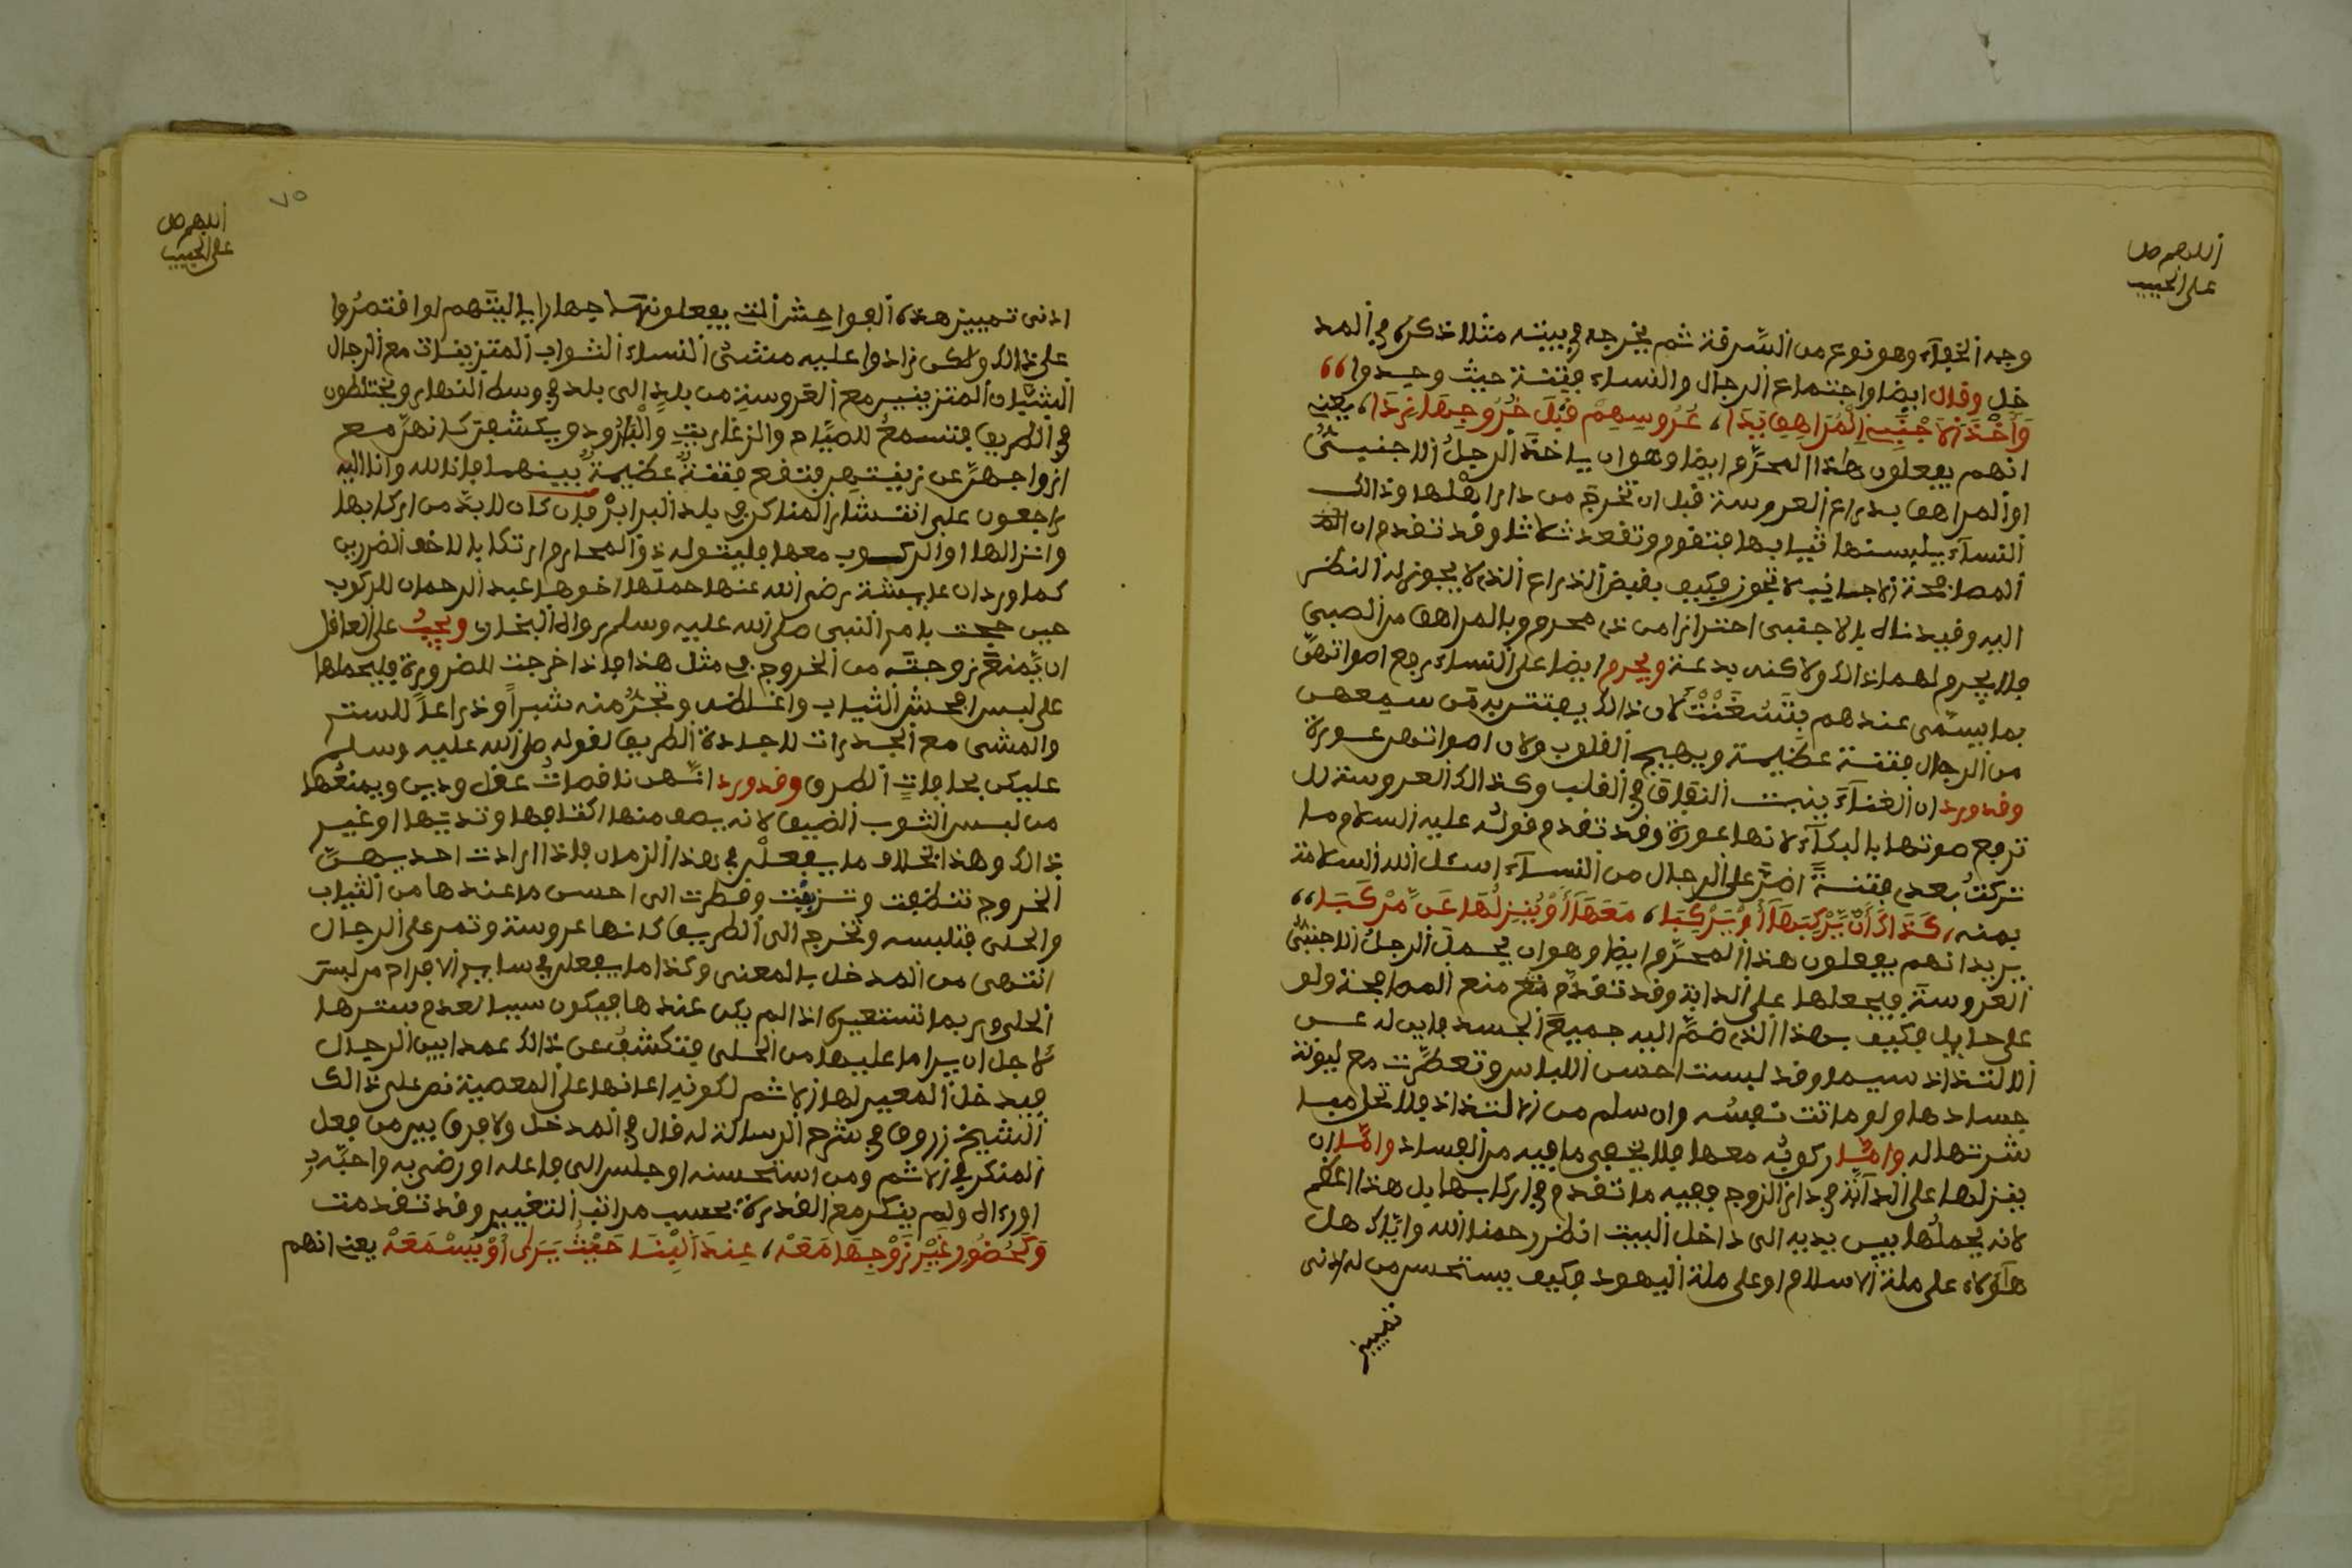 اللهم صل
على الحبيب
وجه الخفاء وهو نوع من السرقة ثم يخرجه في بيته مثلا ذكره في المد
خل وقال ايضا واجتماع الرجال والنساء فتنة حيث وجدوا
وَأَخْذَ الْأَجْنَبِيِ الْمُرَاهِقِ يَدَا، عَرُوسِهِمْ قَبْلَ خُرُوجِهَا بَدَا، يعني
انهم يفعلون هذا المحرّم ايضا وهو ان ياخذ الرجلُ الاجنبيُّ
او المراهق بذراع العروسة قبل ان تخرج من دار اهلها وذالك
النساء يلبسنها ثيابها فتقوم وتقعد ثلاثا وقد تقدم ان
المصافحة الاجانب لا تجوز فكيف بقبض الذراع الذي لا يجوز له النظر
اليه وقيدناه بالاجنبي احترازا من ذي محرم وبالمراهق من الصبي
فلا يحرم لهما ذالك ولاكنه بدعة ويحرم ايضا على النساء رفع اصواتهنّ
بما يسمّى عندهم لان ذالك يفتتن به من سمعهن
من الرجال فتنة عظيمة ويهيج القلوب ولان اصواتهن عورة
وقد ورد ان الغناء ينبت النفاق في القلب وكذالك العروسة لا
ترفع صوتها بالبكاء لانها عورة وقد تقدم قوله عليه السلام ما
تركتُ بعدي فتنةً اضرّ على الرجال من النساء اسئل الله السلامة
بمنه، كَذَاكَ أَنْ يُرْكِبَهَا أَوْ يَرْكَبَا، مَعَهَا أَوْ يُنْزِلُهَا عَن مَّرْكَبَا،،
يريد انهم يفعلون هذا المحرّم ايضا وهو ان يحمل الرجلُ الاجنبيُّ
العروسةَ فيجعلها على الدابة وقد تقدّم منع المصافحة ولو
على حايل فكيف بهذا الذي ضمّ اليه جميع الجسد فاين له عن
الالتذاذ سيما وقد لبست احسن اللباس وتعطّرت مع ليونة
جسدها ولو ماتت نفسُه وان سلم من الالتذاذ فلا تحل مبا
شرتها له وامّا ركوبُه معها فلا يخفى ما فيه من الفساد وامّا ان
ينزلها على الدابّة في دار الزوج ففيه ما تقدم في اركابها بل هذا اعظم
لانه يحملُها بين يديه الى داخل البيت انظر رحمنا الله وايّاك هل
هآؤلاء على ملة الاسلام او على ملة اليهود فكيف يستحسن من له ادنى
تمييز
٧٥
اللهم صل
على الحبيب
ادنى تمييز هذه الفواحش التي يفعلونها جهارا يا ليتهم لو اقتصرُوا
على ذالك ولكن زادوا عليه مشيُ النساء الشواب المتزينات مع الرجال
الشبّان المتزينين مع العروسةِ من بلدٍ الى بلد في وسط النهار ويختلطون
في الطريق فتسمعُ للصّياح والزغاريت والبارود ويكشفن كانهنّ مع
ازواجهنّ عن زينتهن فتقع فتنةٌ عظيمةٌ بينهما فانا لله وانا اليه
راجعون على انتشار المناكر في بلد البرابر فان كان لا بدّ من اركابها
وانزالها او الركوب معها فليتوله ذو المحارم ارتكابا للاخف الضررين
كما ورد ان عايشة رضي الله عنها حملها اخوها عبد الرحمان للركوب
حين حجت بامر النبي صلى الله عليه وسلم رواه البخاري ويجبُ على العاقل
ان يّمنع زوجته من الخروج في مثل هذا فاذا خرجت للضرورة فليحملها
على لبس اخشن الثياب واغلظه وتجرّ منه شبراً وذراعاً للستر
والمشي مع الجدرات لا جادة الطريق لقوله صلى الله عليه وسلم
عليكن بحافات الطرق وقد ورد انّهن ناقصاتُ عقل ودين ويمنعُها
من لبس الثوب الضيق لانه يصف منها اكتافها وثديَيها او غير
ذالك وهذا بخلاف ما يفعلن في هذا الزمان فاذا ارادت احديهنّ
الخروج تنظفت وتزينت ونظرت الى احسن ما عندها من الثياب
والحلى فتلبسه وتخرج الى الطريق كانها عروسة وتمر على الرجال
انتهى من المدخل بالمعنى وكذا ما يفعلن في ساير الافراح من لبس
الحلى وربما تستعيره اذا لم يكن عندها فيكون سببا لعدم سترها
لاجل ان يرا ما عليها من الحلى فتكشفُ عن ذالك عمدا بين الرجال
فيدخل المعير لها الاثم لكونه اعانها على المعصية نص على ذالك
الشيخ زروق في شرح الرسالة له قال في المدخل ولا فرق بين من فعل
المنكر في الاثم ومن استحسنه او جلس الى فاعله او رضي به واحبّه
او رءاه ولم ينكر مع القدرة بحسب مراتب التغيير وقد تقدمت
وَكَحُضُورِ غَيْرِ زَوْجِهَا مَعَهْ، عِندَ الْبِنَا حَيْثُ يَرَى أَوْ يَسْمَعَهْ يعني انهم